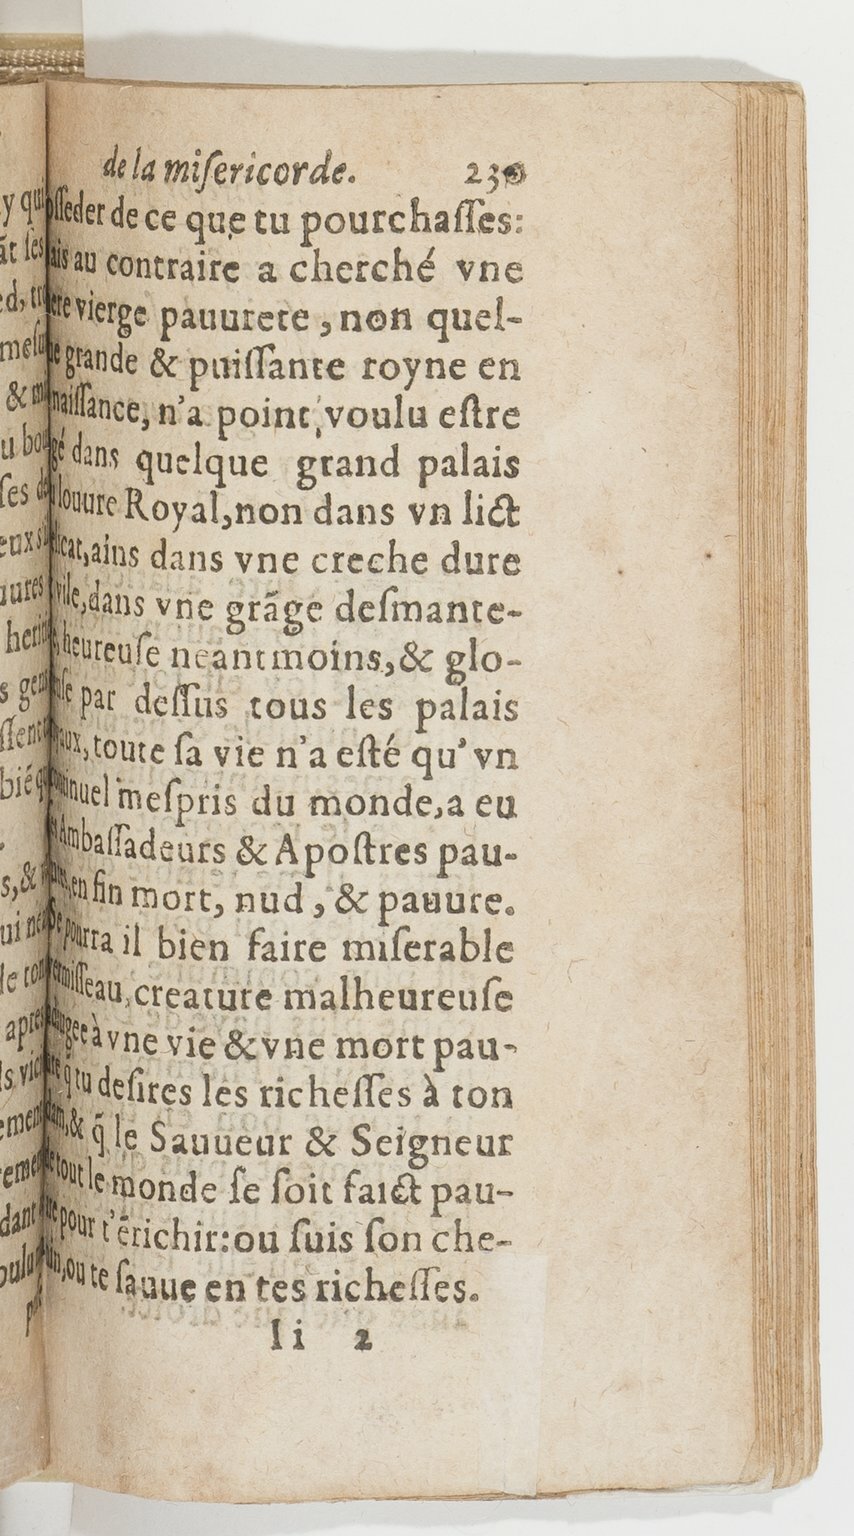 de la miſericorde. 230
ſſeder de ce que tu pourchaſſes:
ais au contraire a cherché vne
vierge pauurete, non quel-
grande & puiſſante royne en
naiſſance, n'a point voulu eſtre
dans quelque grand palais
louure Royal, non dans vn lict
licat, ains dans vne creche dure
vile, dans vne grãge deſmante-
heureuſe neantmoins, & glo-
par deſſus tous les palais
aux, toute ſa vie n'a eſté qu'vn
inuel meſpris du monde, a eu
Ambaſſadeurs & Apoſtres pau-
en fin mort, nud, & pauure.
pourra il bien faire miſerable
miſſeau, creature malheureuſe
à vne vie & vne mort pau-
q̃ tu deſires les richeſſes à ton
& q̃ le Sauueur & Seigneur
tout le monde ſe ſoit faict pau-
pour t'ẽrichir: ou ſuis ſon che-
ou te ſauue en tes richeſſes.
Ii 2